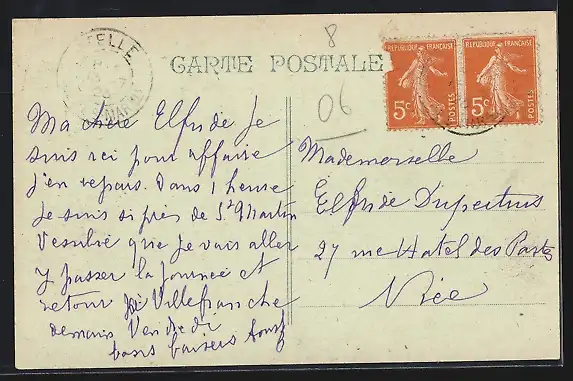 CARTE POSTALE
8
06
REPUBLIQUE FRANÇAISE
5c
POSTES
REPUBLIQUE FRANÇAISE
5c
POSTES
Ma chère Elfride Je
suis ici pour affaire
j'en repars dans 1 heure
Je suis si près de St Martin
Vesubie que je vais aller
y passer la journée et
retour Villefranche
demain Vendredi
bons baisers
Mademoiselle
Elfride
27 rue Hotel des Postes
Nice